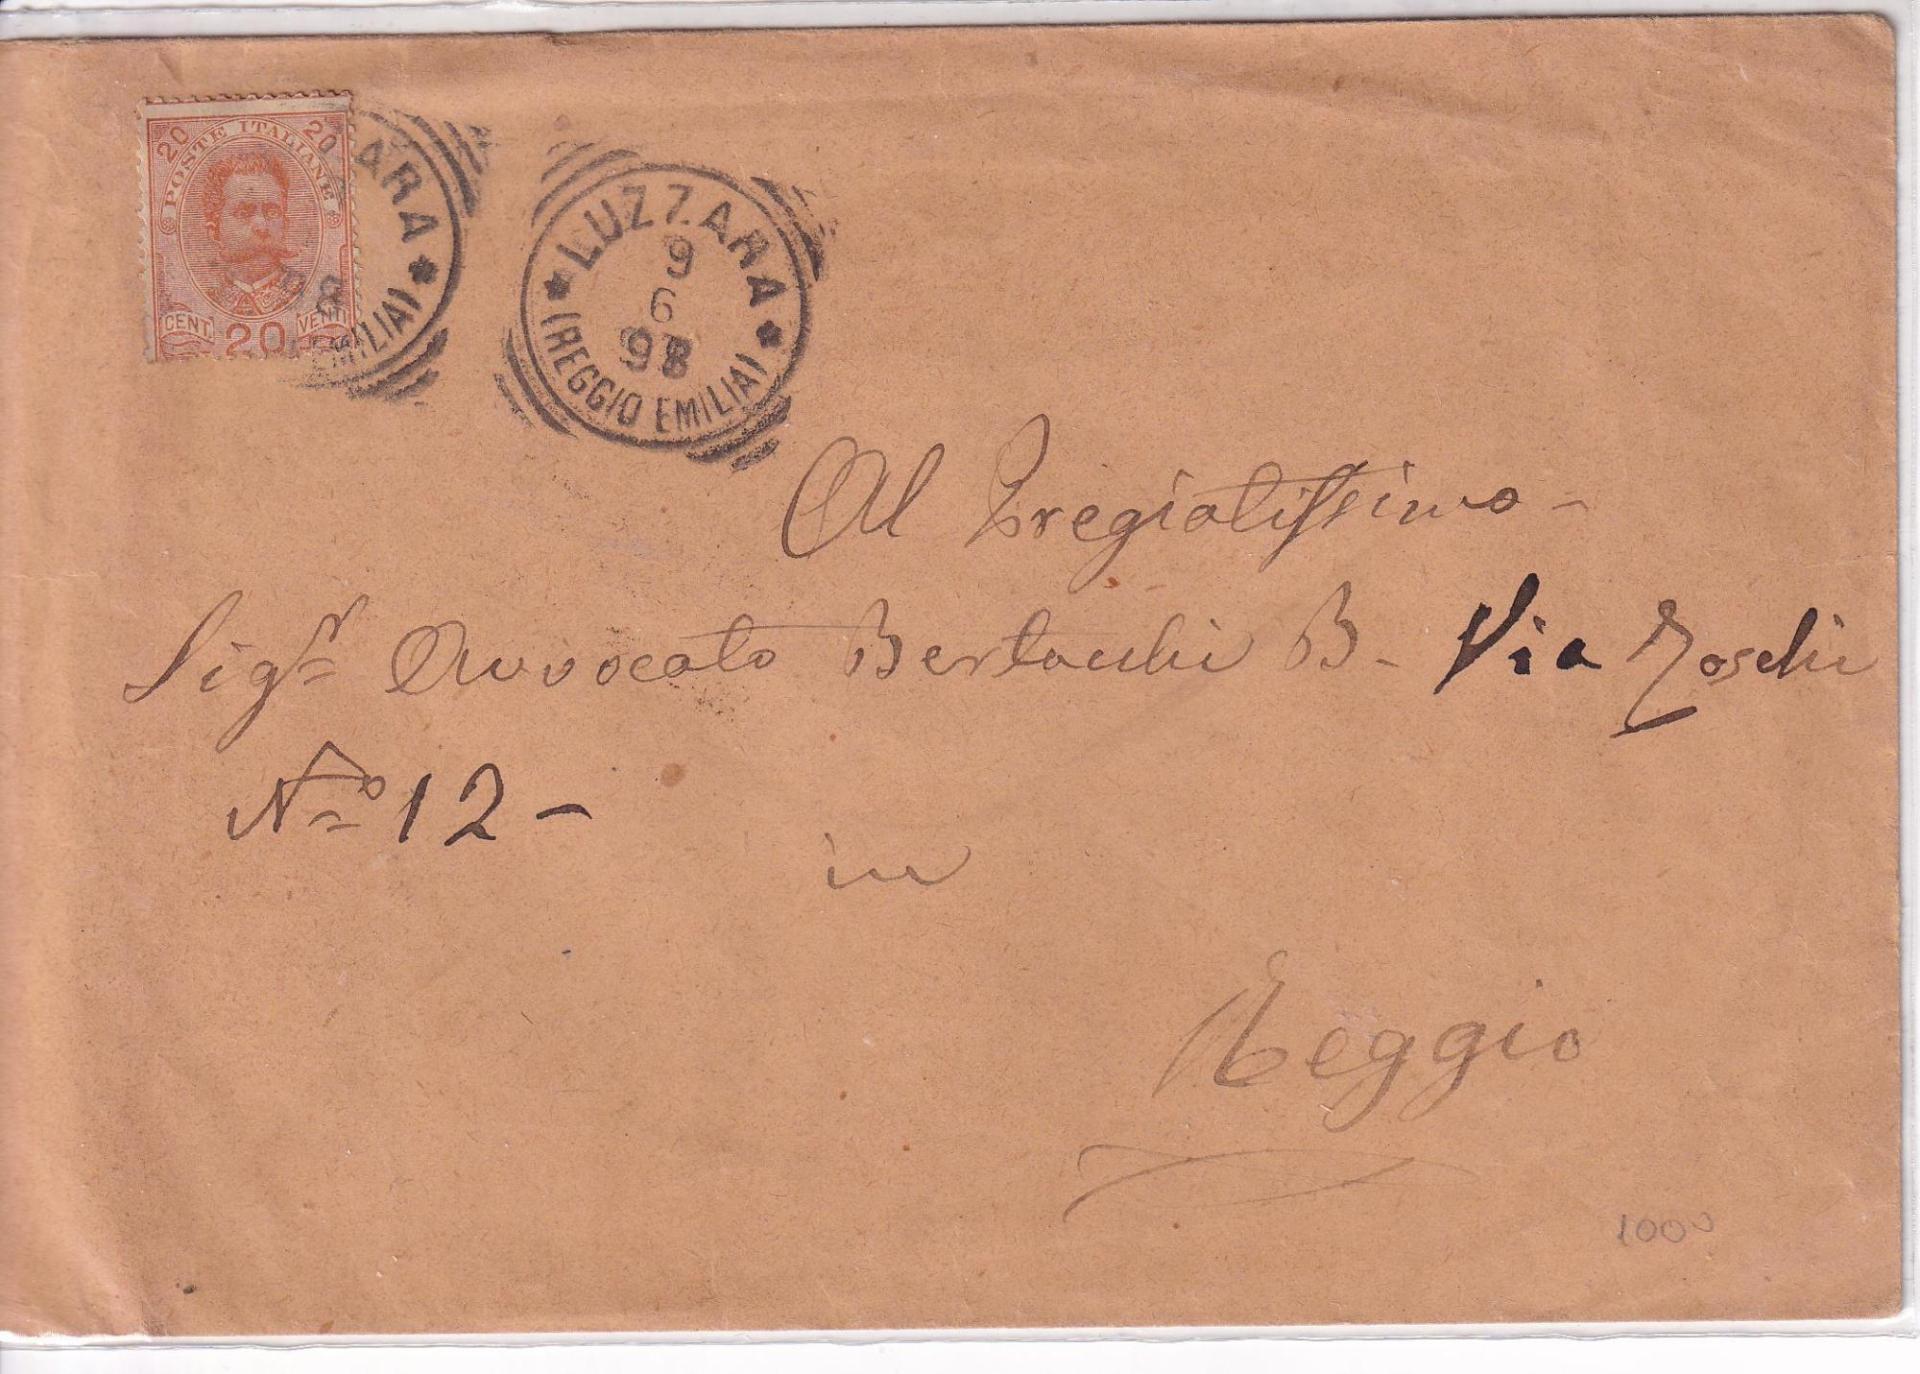 20 POSTE ITALIANE 20
CENT. 20 VENTI
ARA
98
EMILIA)
LUZZARA
9
6
98
(REGGIO EMILIA)
Al Pregiatissimo -
Sigr Avvocato Bertacchi B - Via Toschi
No 12 -
in
Reggio
1000